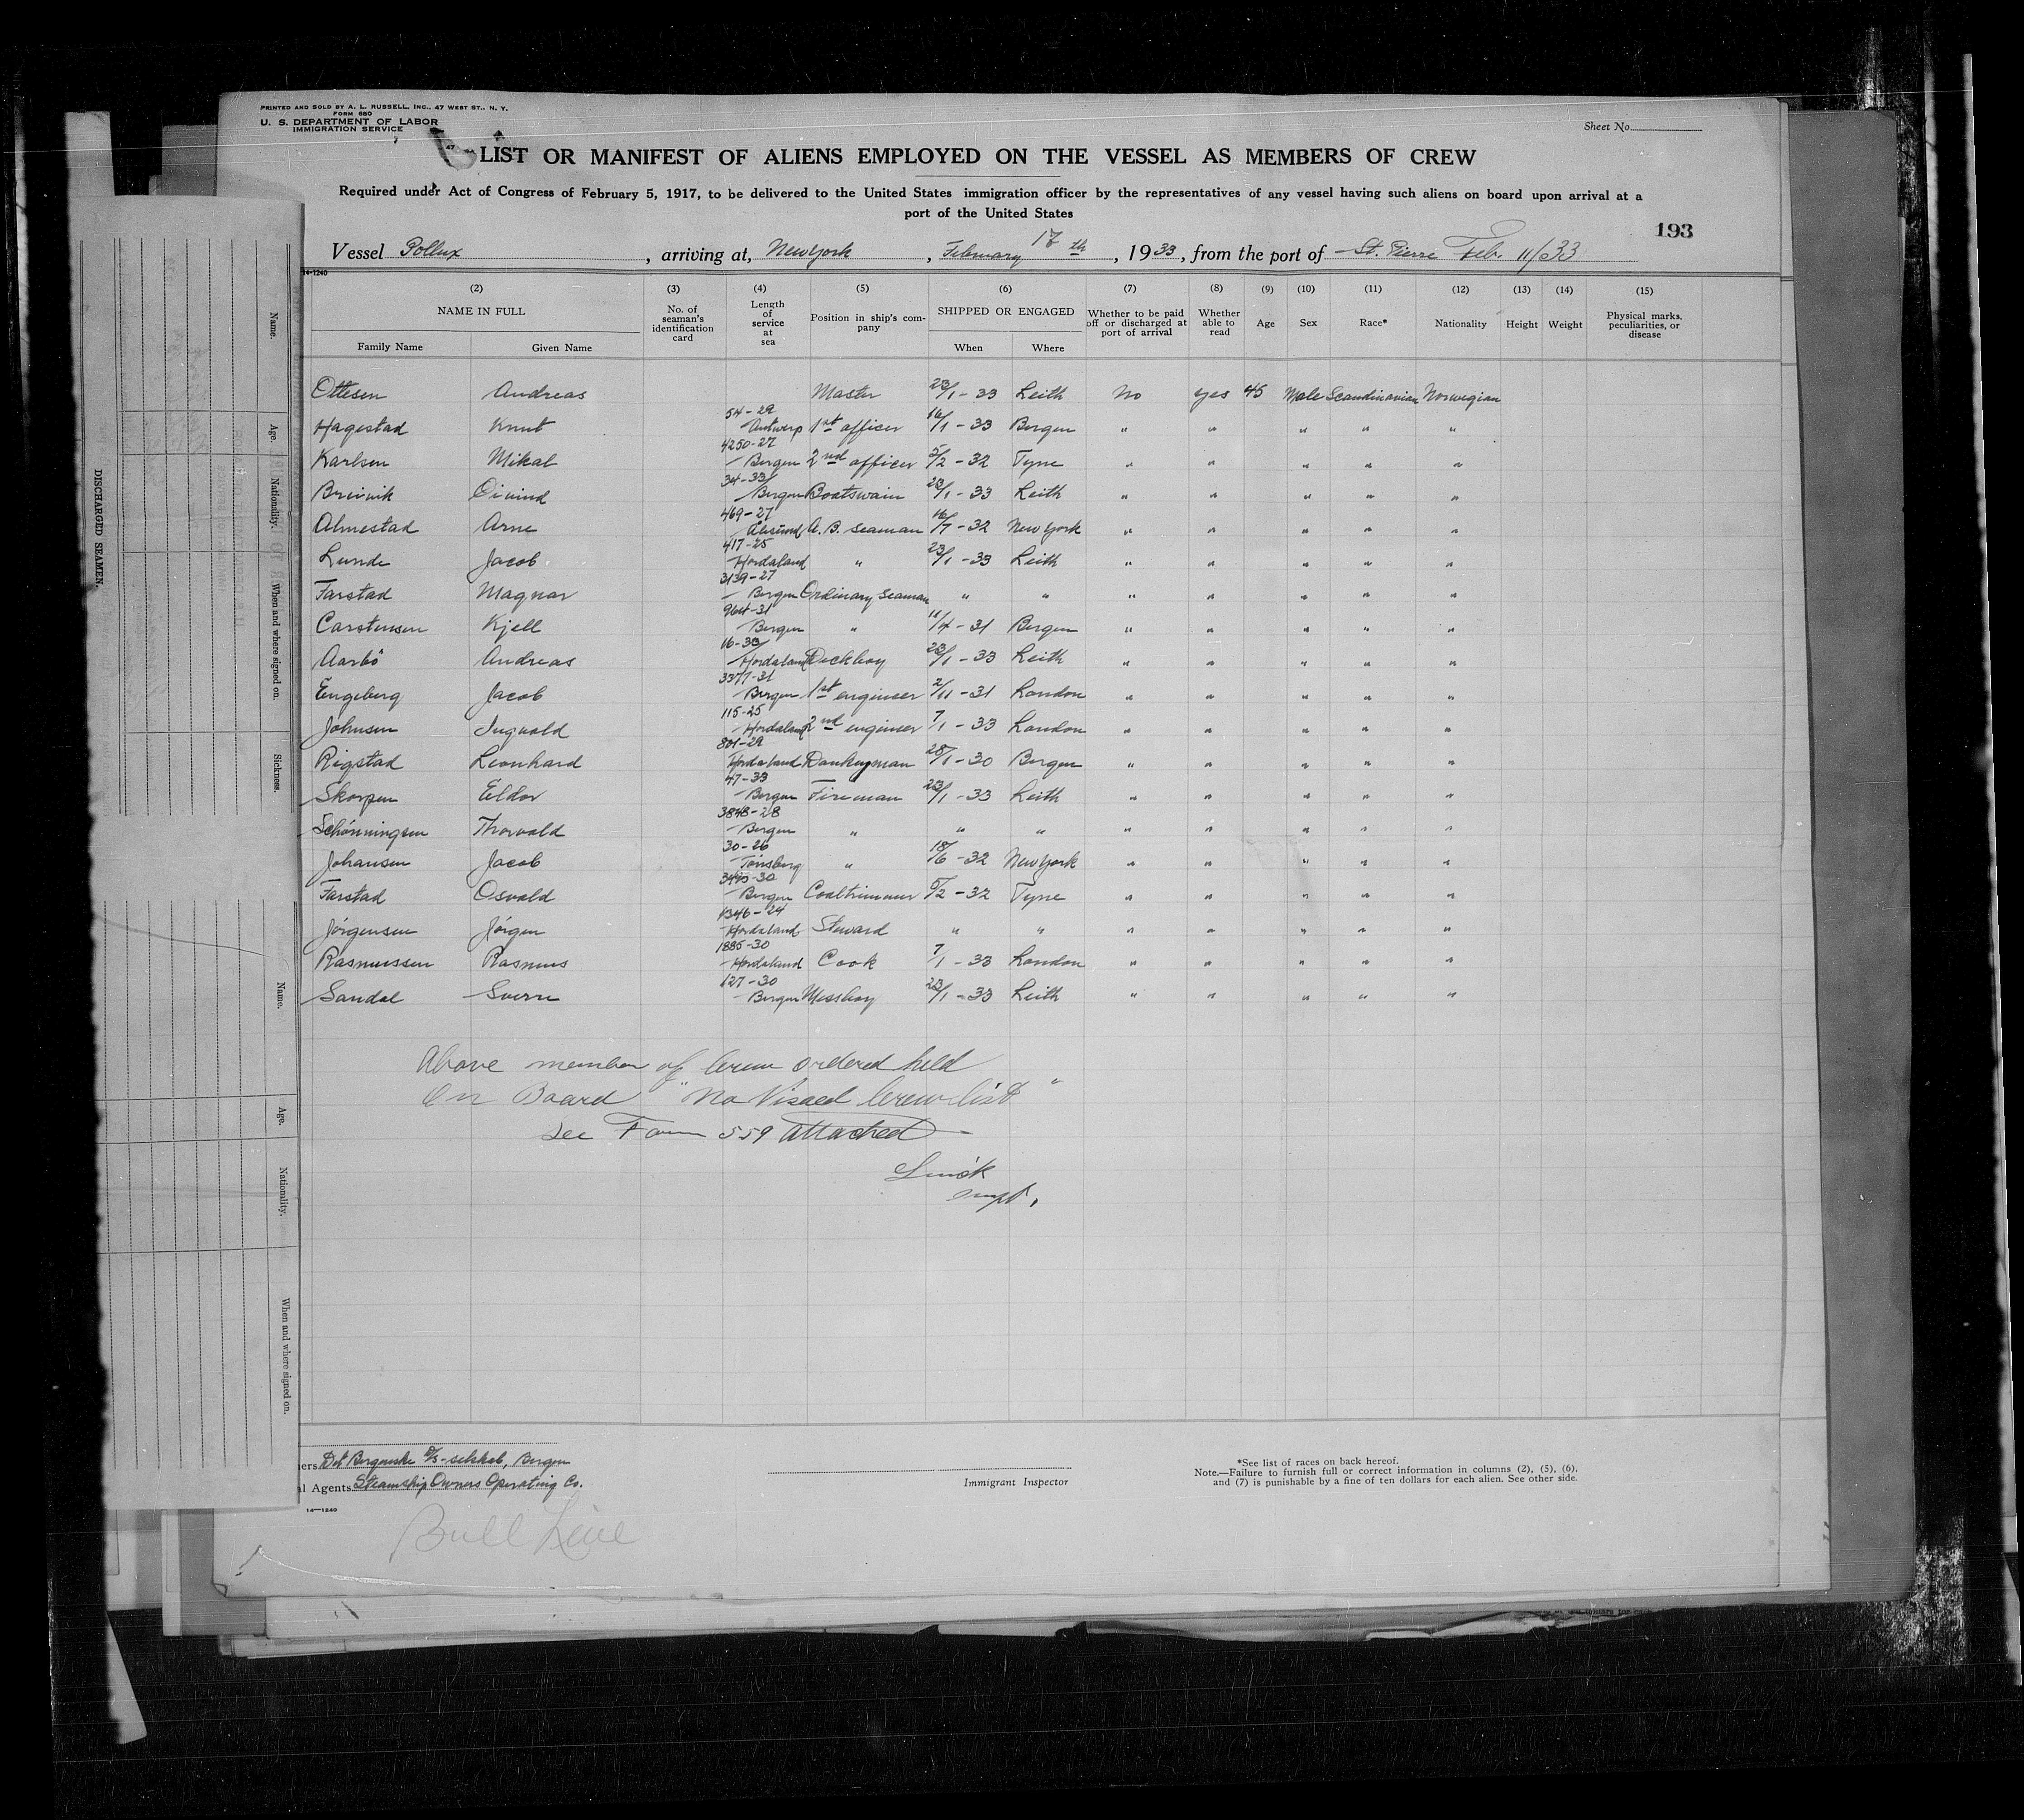 PRINTED AND SOLD BY A. L. RUSSELL, INC., 47 WEST ST., N. Y.
FORM 680
U. S. DEPARTMENT OF LABOR
IMMIGRATION SERVICE
Sheet No.
LIST OR MANIFEST OF ALIENS EMPLOYED ON THE VESSEL AS MEMBERS OF CREW
Required under Act of Congress of February 5, 1917, to be delivered to the United States immigration officer by the representatives of any vessel having such aliens on board upon arrival at a
port of the United States
193
Vessel Pollux, arriving at, New York, February 17th, 1933, from the port of St. Pierre Feb. 11/33
14-1240
(2) (3) (4) (5) (6) (7) (8) (9) (10) (11) (12) (13) (14) (15)
NAME IN FULL No. of seaman's identification card Length of service at sea Position in ship's company SHIPPED OR ENGAGED Whether to be paid off or discharged at port of arrival Whether able to read Age Sex Race* Nationality Height Weight Physical marks, peculiarities, or disease
Family Name Given Name When Where
Ottesen Andreas Master 23/1-33 Leith No yes 45 Male Scandinavian Norwegian
Hagestad Knut 54-29 Antwerp 1st officer 16/1-33 Bergen " " " " "
Karlsen Mikal 4250-27 Bergen 2nd officer 5/2-32 Tyne " " " " "
Breivik Oivind 34-33 Bergen Boatswain 23/1-33 Leith " " " " "
Almestad Arne 469-27 Ålesund A. B. seaman 16/7-32 New York " " " " "
Lunde Jacob 417-25 Hordaland " 23/1-33 Leith " " " " "
Farstad Magnar 3139-27 Bergen Ordinary seaman " " " " " " "
Carstensen Kjell 964-31 Bergen " 11/4-31 Bergen " " " " "
Aarbö Andreas 16-33 Hordaland Deckboy 23/1-33 Leith " " " " "
Engeberg Jacob 3377-31 Bergen 1st engineer 2/11-31 London " " " " "
Johnsen Ingvald 115-25 Hordaland 2nd engineer 7/1-33 London " " " " "
Rigstad Leonhard 801-29 Hordaland Donkeyman 28/1-30 Bergen " " " " "
Skorpen Eldor 47-33 Bergen Fireman 23/1-33 Leith " " " " "
Schönningsen Thorvald 3848-28 Bergen " " " " " " " "
Johansen Jacob 30-26 Tönsberg " 18/6-32 New York " " " " "
Farstad Osvald 3493-30 Bergen Coaltrimmer 5/2-32 Tyne " " " " "
Jörgensen Jörgen 1346-24 Hordaland Steward " " " " " " "
Rasmussen Rasmus 1885-30 Hordaland Cook 7/1-33 London " " " " "
Sandal Sverre 127-30 Bergen Messboy 23/1-33 Leith " " " " "
Above member of Crew ordered held
On Board "No Visaed Crew list"
see Form 559 attached
Inspt.
ers Det Bergenske D/S-selskab, Bergen
l Agents Steamship Owners Operating Co.
14—1240
Immigrant Inspector
*See list of races on back hereof.
Note.—Failure to furnish full or correct information in columns (2), (5), (6),
and (7) is punishable by a fine of ten dollars for each alien. See other side.
Bull Line
DISCHARGED SEAMEN.
Name.
Age.
Nationality.
When and where signed on.
Sickness.
Name.
Age.
Nationality.
When and where signed on.